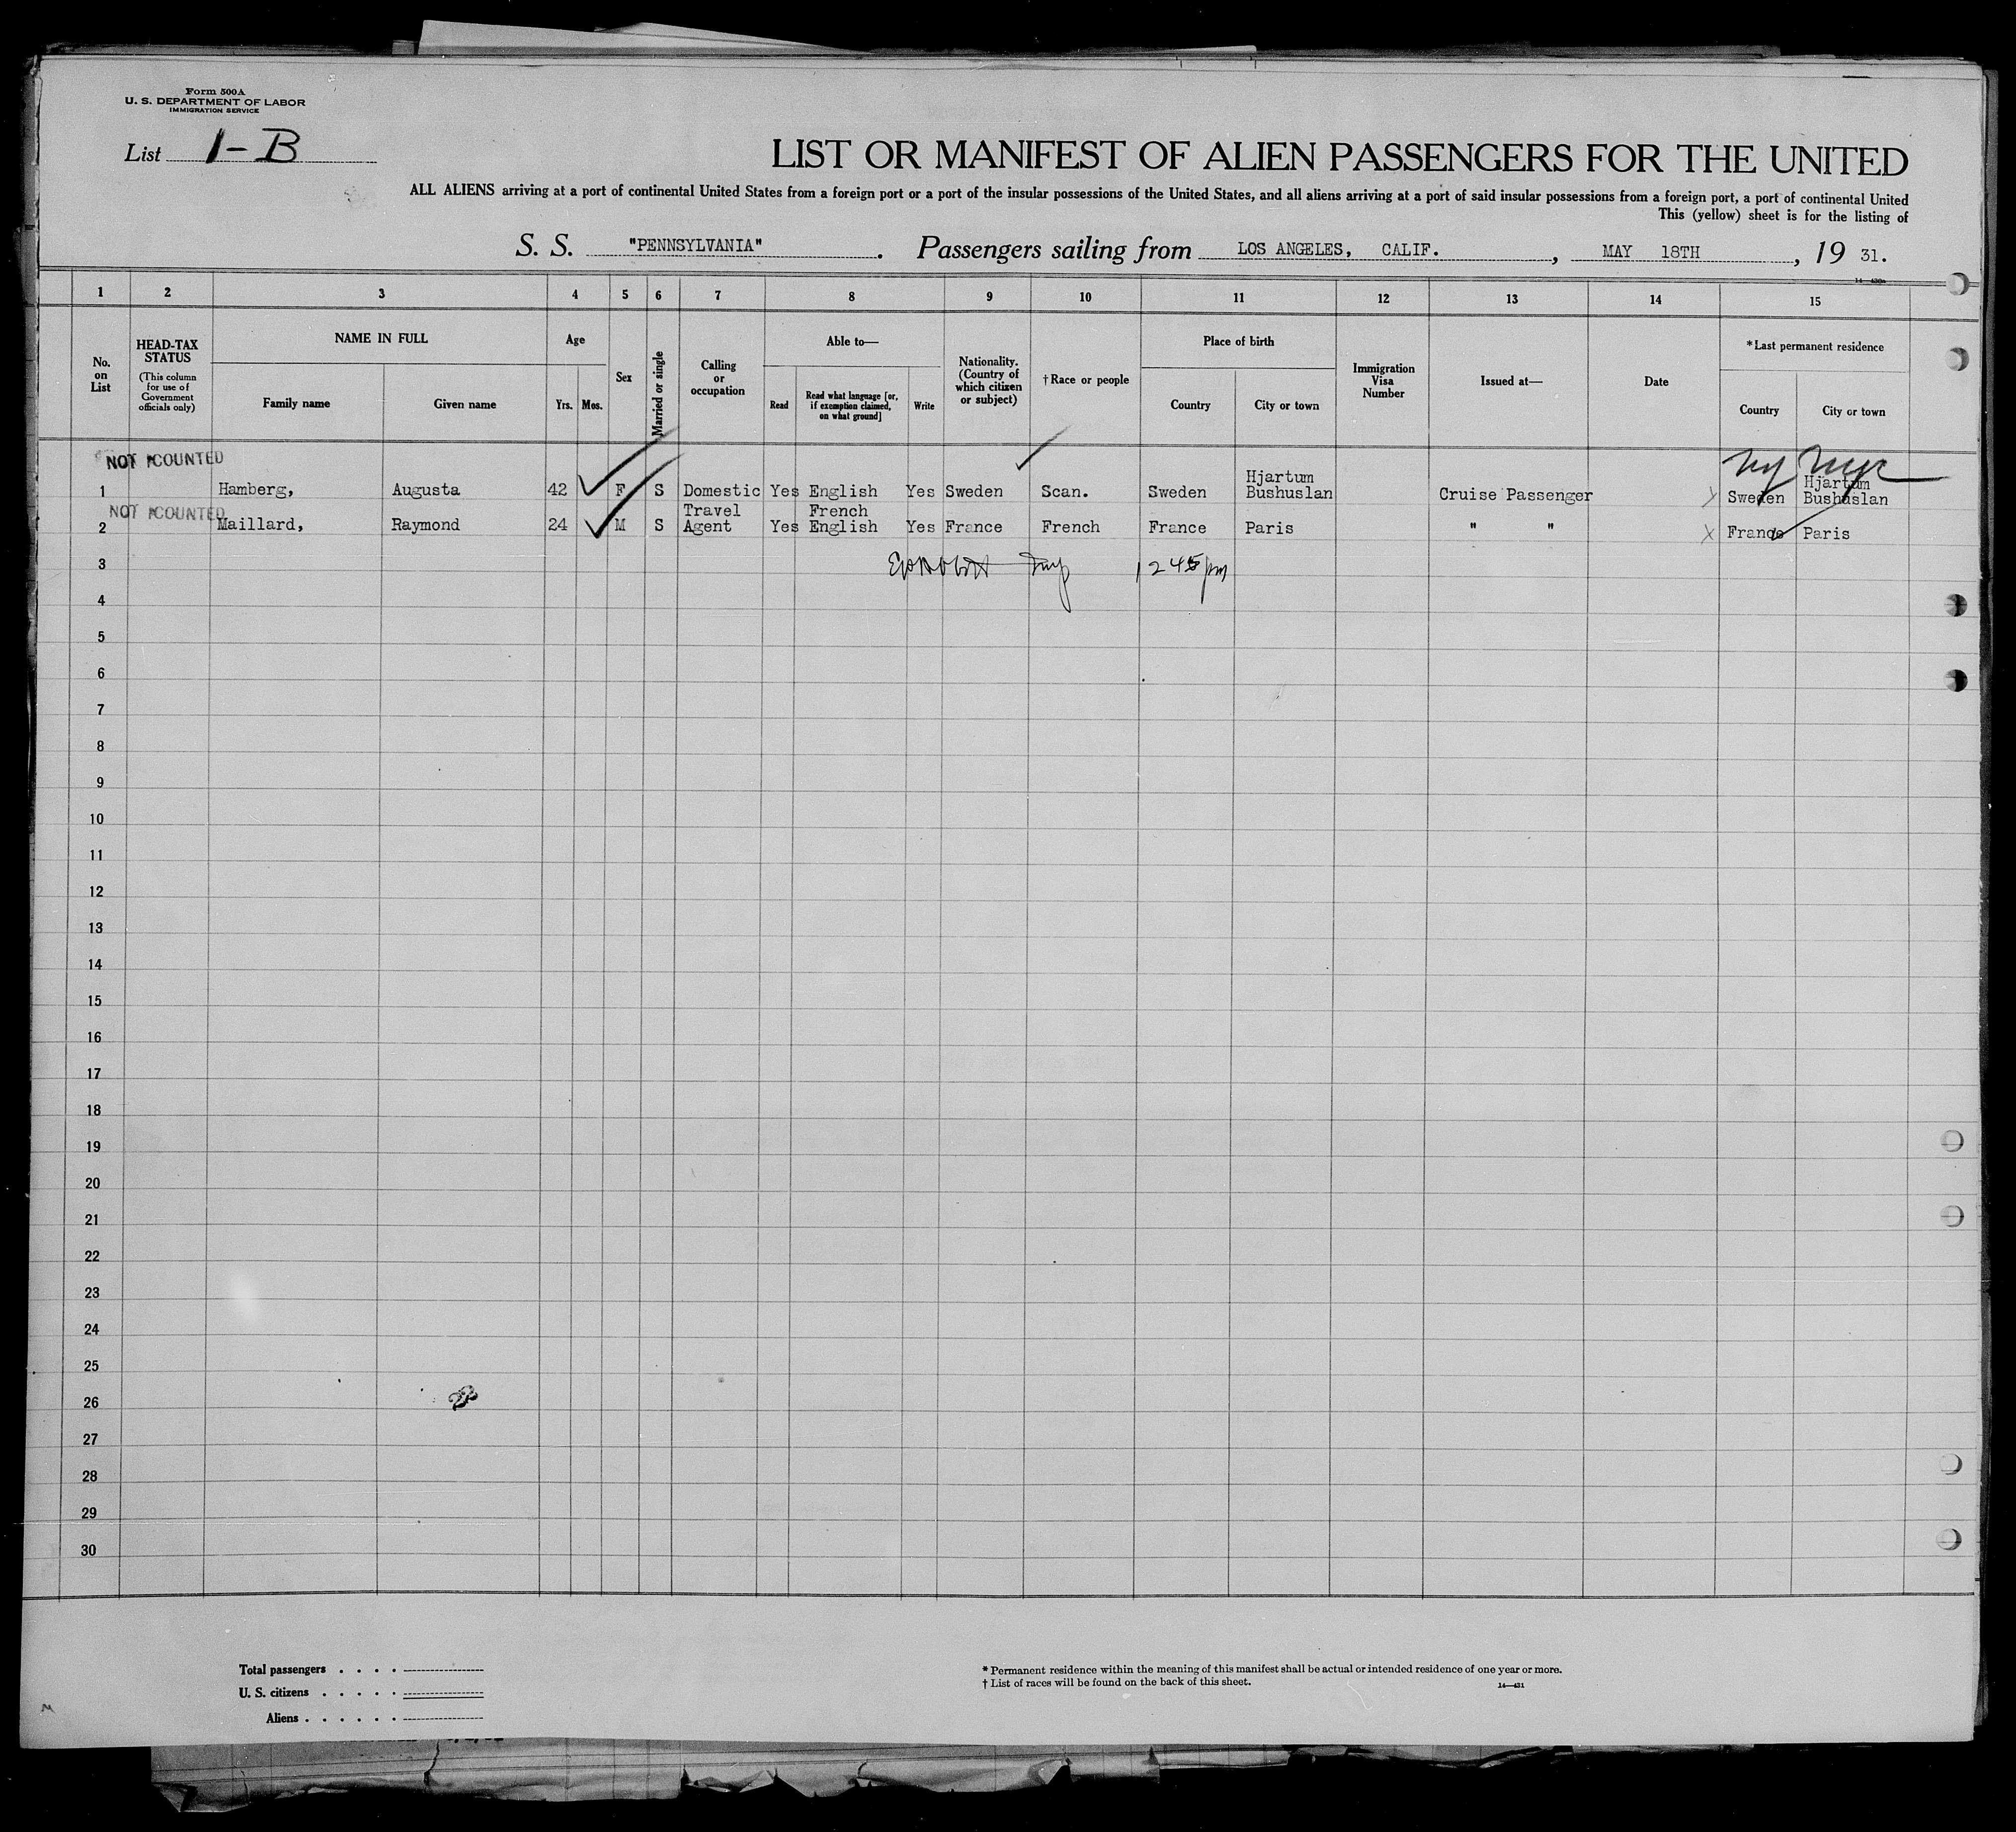 Form 500A
U. S. DEPARTMENT OF LABOR
IMMIGRATION SERVICE
List 1-B
LIST OR MANIFEST OF ALIEN PASSENGERS FOR THE UNITED
ALL ALIENS arriving at a port of continental United States from a foreign port or a port of the insular possessions of the United States, and all aliens arriving at a port of said insular possessions from a foreign port, a port of continental United
This (yellow) sheet is for the listing of
S. S. "PENNSYLVANIA". Passengers sailing from LOS ANGELES, CALIF., MAY 18TH, 19 31.
1 2 3 4 5 6 7 8 9 10 11 12 13 14 15
No. on List
HEAD-TAX STATUS
(This column for use of Government officials only)
NAME IN FULL
Family name Given name
Age
Yrs. Mos.
Sex
Married or single
Calling or occupation
Able to—
Read
Read what language [or, if exemption claimed, on what ground]
Write
Nationality. (Country of which citizen or subject)
† Race or people
Place of birth
Country City or town
Immigration Visa Number
Issued at—
Date
* Last permanent residence
Country City or town
NOT COUNTED
1 Hamberg, Augusta 42 F S Domestic Yes English Yes Sweden Scan. Sweden Hjartum Bushuslan Cruise Passenger Sweden Hjartum Bushuslan
NOT COUNTED
2 Maillard, Raymond 24 M S Travel Agent Yes French English Yes France French France Paris " " France Paris
3 1245 pm
4
5
6
7
8
9
10
11
12
13
14
15
16
17
18
19
20
21
22
23
24
25
26
27
28
29
30
Total passengers . . . .
U. S. citizens . . . . .
Aliens . . . . . .
* Permanent residence within the meaning of this manifest shall be actual or intended residence of one year or more.
† List of races will be found on the back of this sheet.
14—431